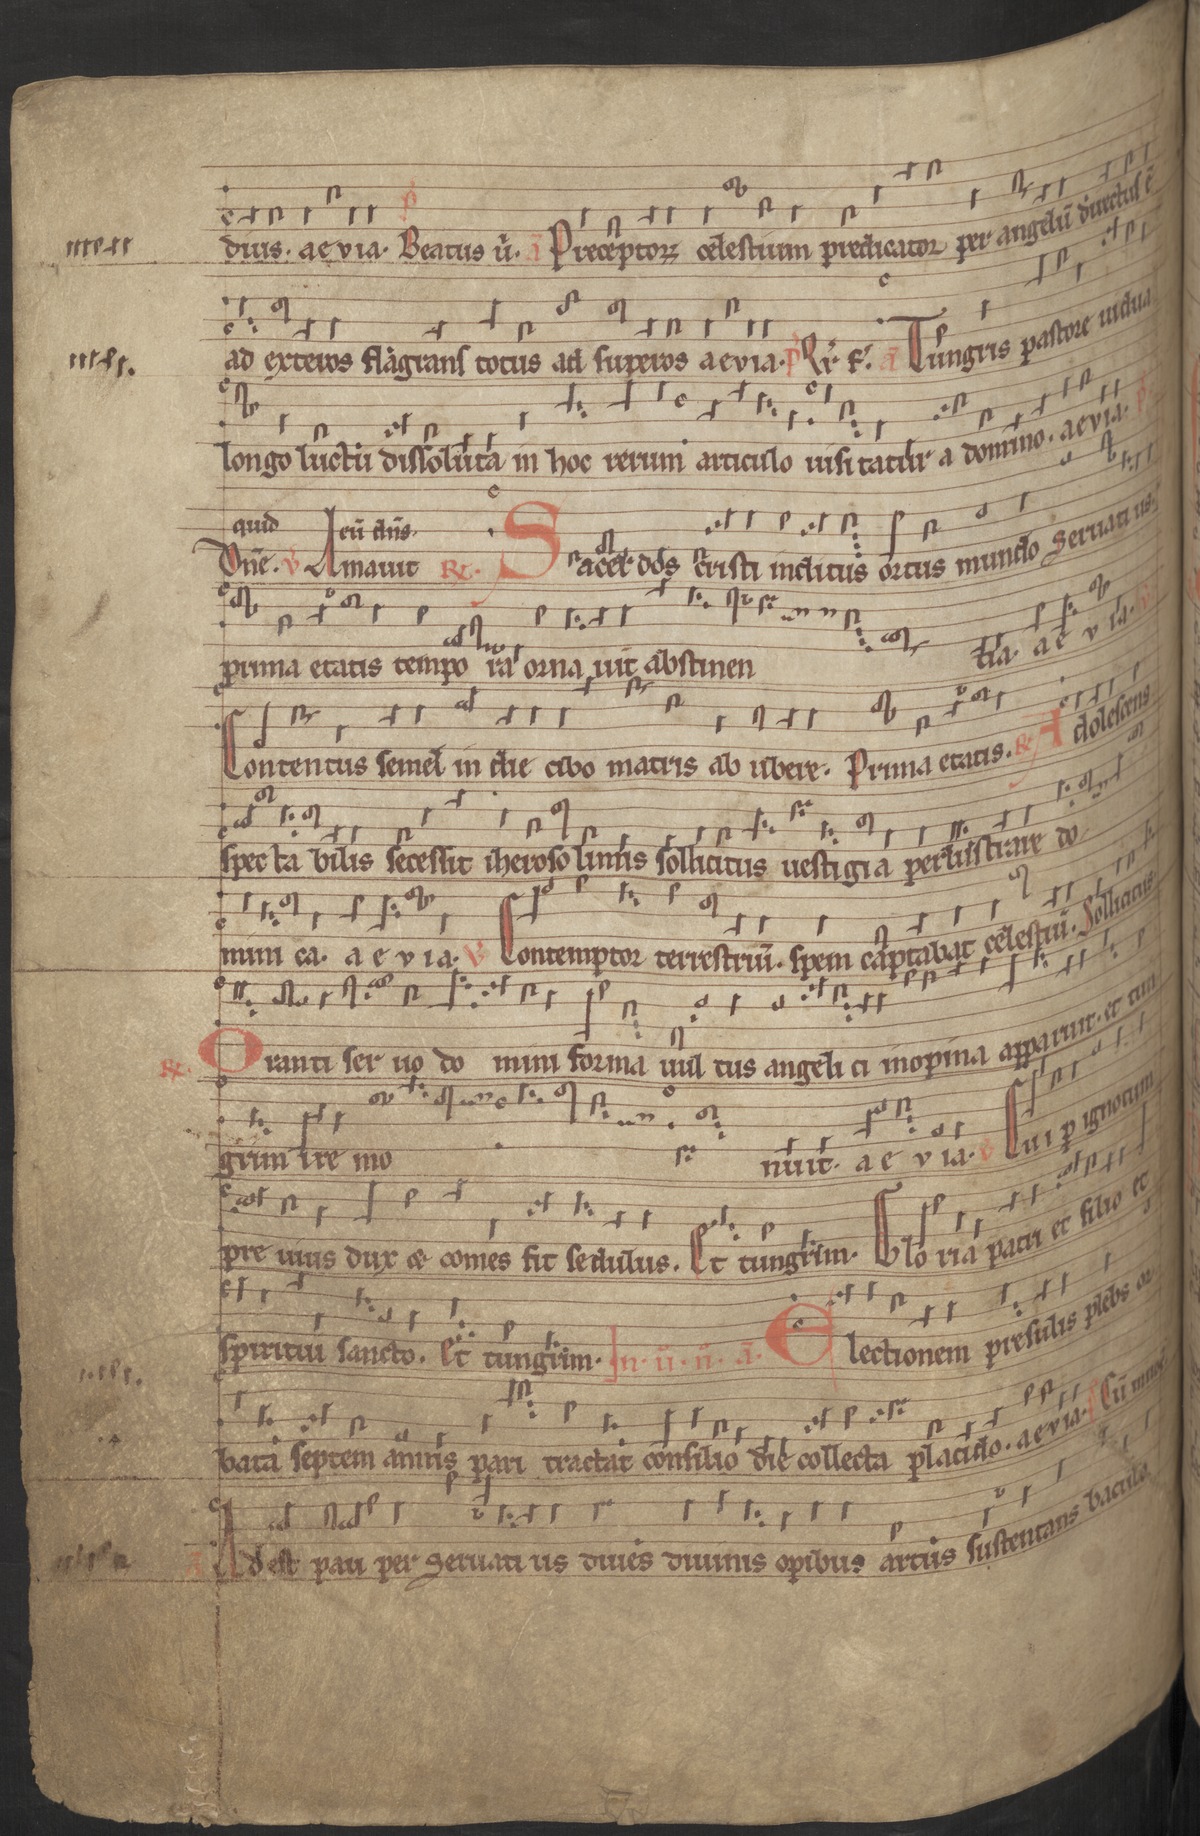 dius. aevia. Beatus ů. a Preceptoꝝ celestium predicator per angelū directus ē
ad exteros flagrans totus ad superos aevia. p̄ Qr̄. F. a Tungris pastore uidua
longo luctu dissoluta in hoc rerum articulo uisitatur a domino. aevia. p̄
quid eū dn̄s.
Dn̄e. v Amauit R. Sacerdos cristi inclitus ortus mundo Seruatius.
prima etatis tempo ra orna uit abstinen tia. a e v ia. v
Contentus semel in die cibo matris ab ubere. Prima etatis. R. Adolescens
specta bilis secessit iheroso limis sollicitus uestigia perlustrare do
mini ca. a e v ia. v Contemptor terrestriū. spem captabat celestiū. Sollicitus
R. Oranti ser uo do mini forma uul tus angeli ci inopina apparuit. et tun
grim ire mo nuit. a e v ia. v Cui p ignotum
pre uius dux & comes fit sedulus. Et tungrim. Glo ria patri et filio et
spiritui sancto. Et tungrim. In. ů. n̄. a. Electionem presulis plebs or
bata septem annis pari tractat consilio die collecta placido. aevia. p̄ Cū inuo
a Adest pau per Seruati us diues diuinis opibus artus sustentans baculo